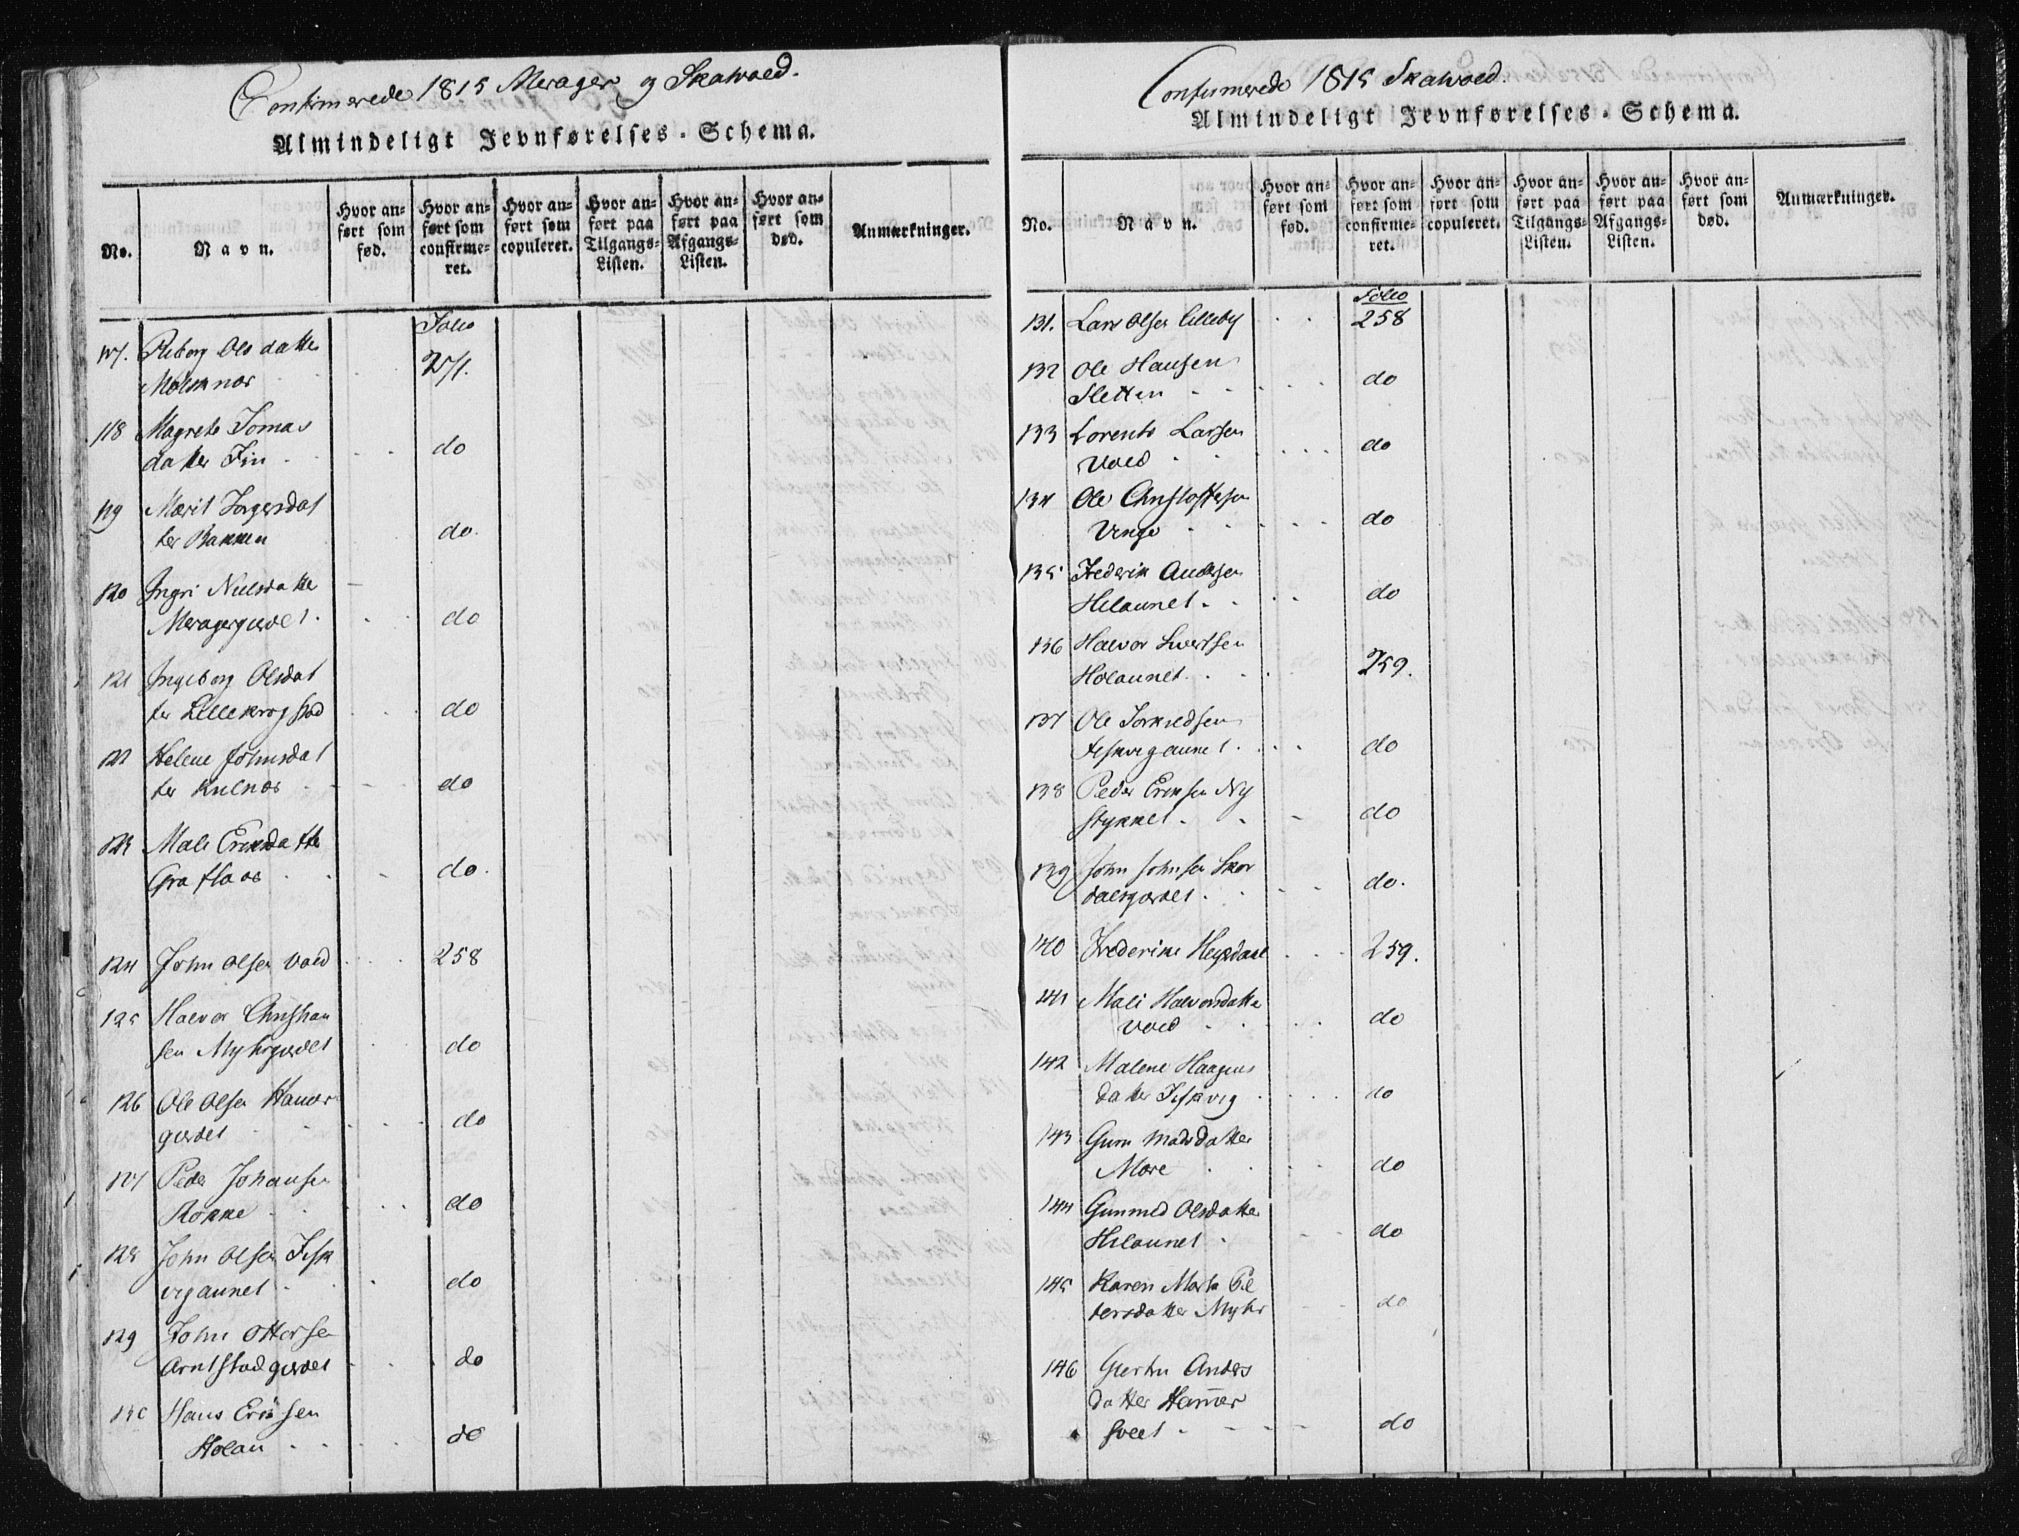 Confirmerede 1815 Merager og Skatvold.
Almindeligt Jevnførelses-Schema.
No. Navn. Hvor anført som fød. Hvor anført som confirmeret. Hvor anført som copuleret. Hvor anført paa Tilgangs-Listen. Hvor anført paa Afgangs-Listen. Hvor anført som død. Anmærkninger.
Folio
117. Olsdatter
271.
118 Magrete Tomas
datter Fin - - - do
119 Marit
ter Bakken - do.
120 Ingri Nielsdatter
Meragergierdet . - - do
121 Ingeborg Olsdat
ter Lillekrogstad - - - do
122 Helene Johnsdat
ter Kulnæs - - - do
123 Mali Ericksdatter
Graflaas - - - do.
124 John Olsen Vold - - - 258
125 Halvor Christian
sen Myhrgierdet - - do
126 Ole Olsen Hamer
gierdet - - - do
127 Peder Johansen
Rokke - - - do
128 John Olsen Fisk
vigaunet - - do
129 John Ottersen
Arntstadgierdet - - - do
130 Hans Ericksen
Holan - - - do
Confirmerede 1815 Skatvold.
Almindeligt Jevnførelses-Schema.
No. Navn. Hvor anført som fød. Hvor anført som confirmeret. Hvor anført som copuleret. Hvor anført paa Tilgangs-Listen. Hvor anført paa Afgangs-Listen. Hvor anført som død. Anmærkninger.
Folio
131. Lars Olsen Lilleby - - - 258
132 Ole Hansen
Sletten - - - do
133 Lorents Larsen
Vold - - - do
134 Ole Christoffersen
Vinge - - - do
135 Frederik Andersen
Helaunet - - - do
136 Halvor Sivertsen
Holaunet - - - 259.
137 Ole Torkildsen
Fiskvigaunet - - - do
138 Peder Ericksen Ny
stykket - - - do
139 John Johnsen Skor
dalsgierdet - - - do.
140 Frederikke - - - 259.
141 Mali Halvorsdatter
Vold - - - do
142 Malene Haagens
datter Fiskvig - - - do
143 Guru Madsdatter
Mære - - - do
144 Gunnild Olsdatter
Helaunet - - - do
145 Karen Marta Pe
tersdatter Myhr - - do
146 Giertru Anders
datter Hamer
- - - do